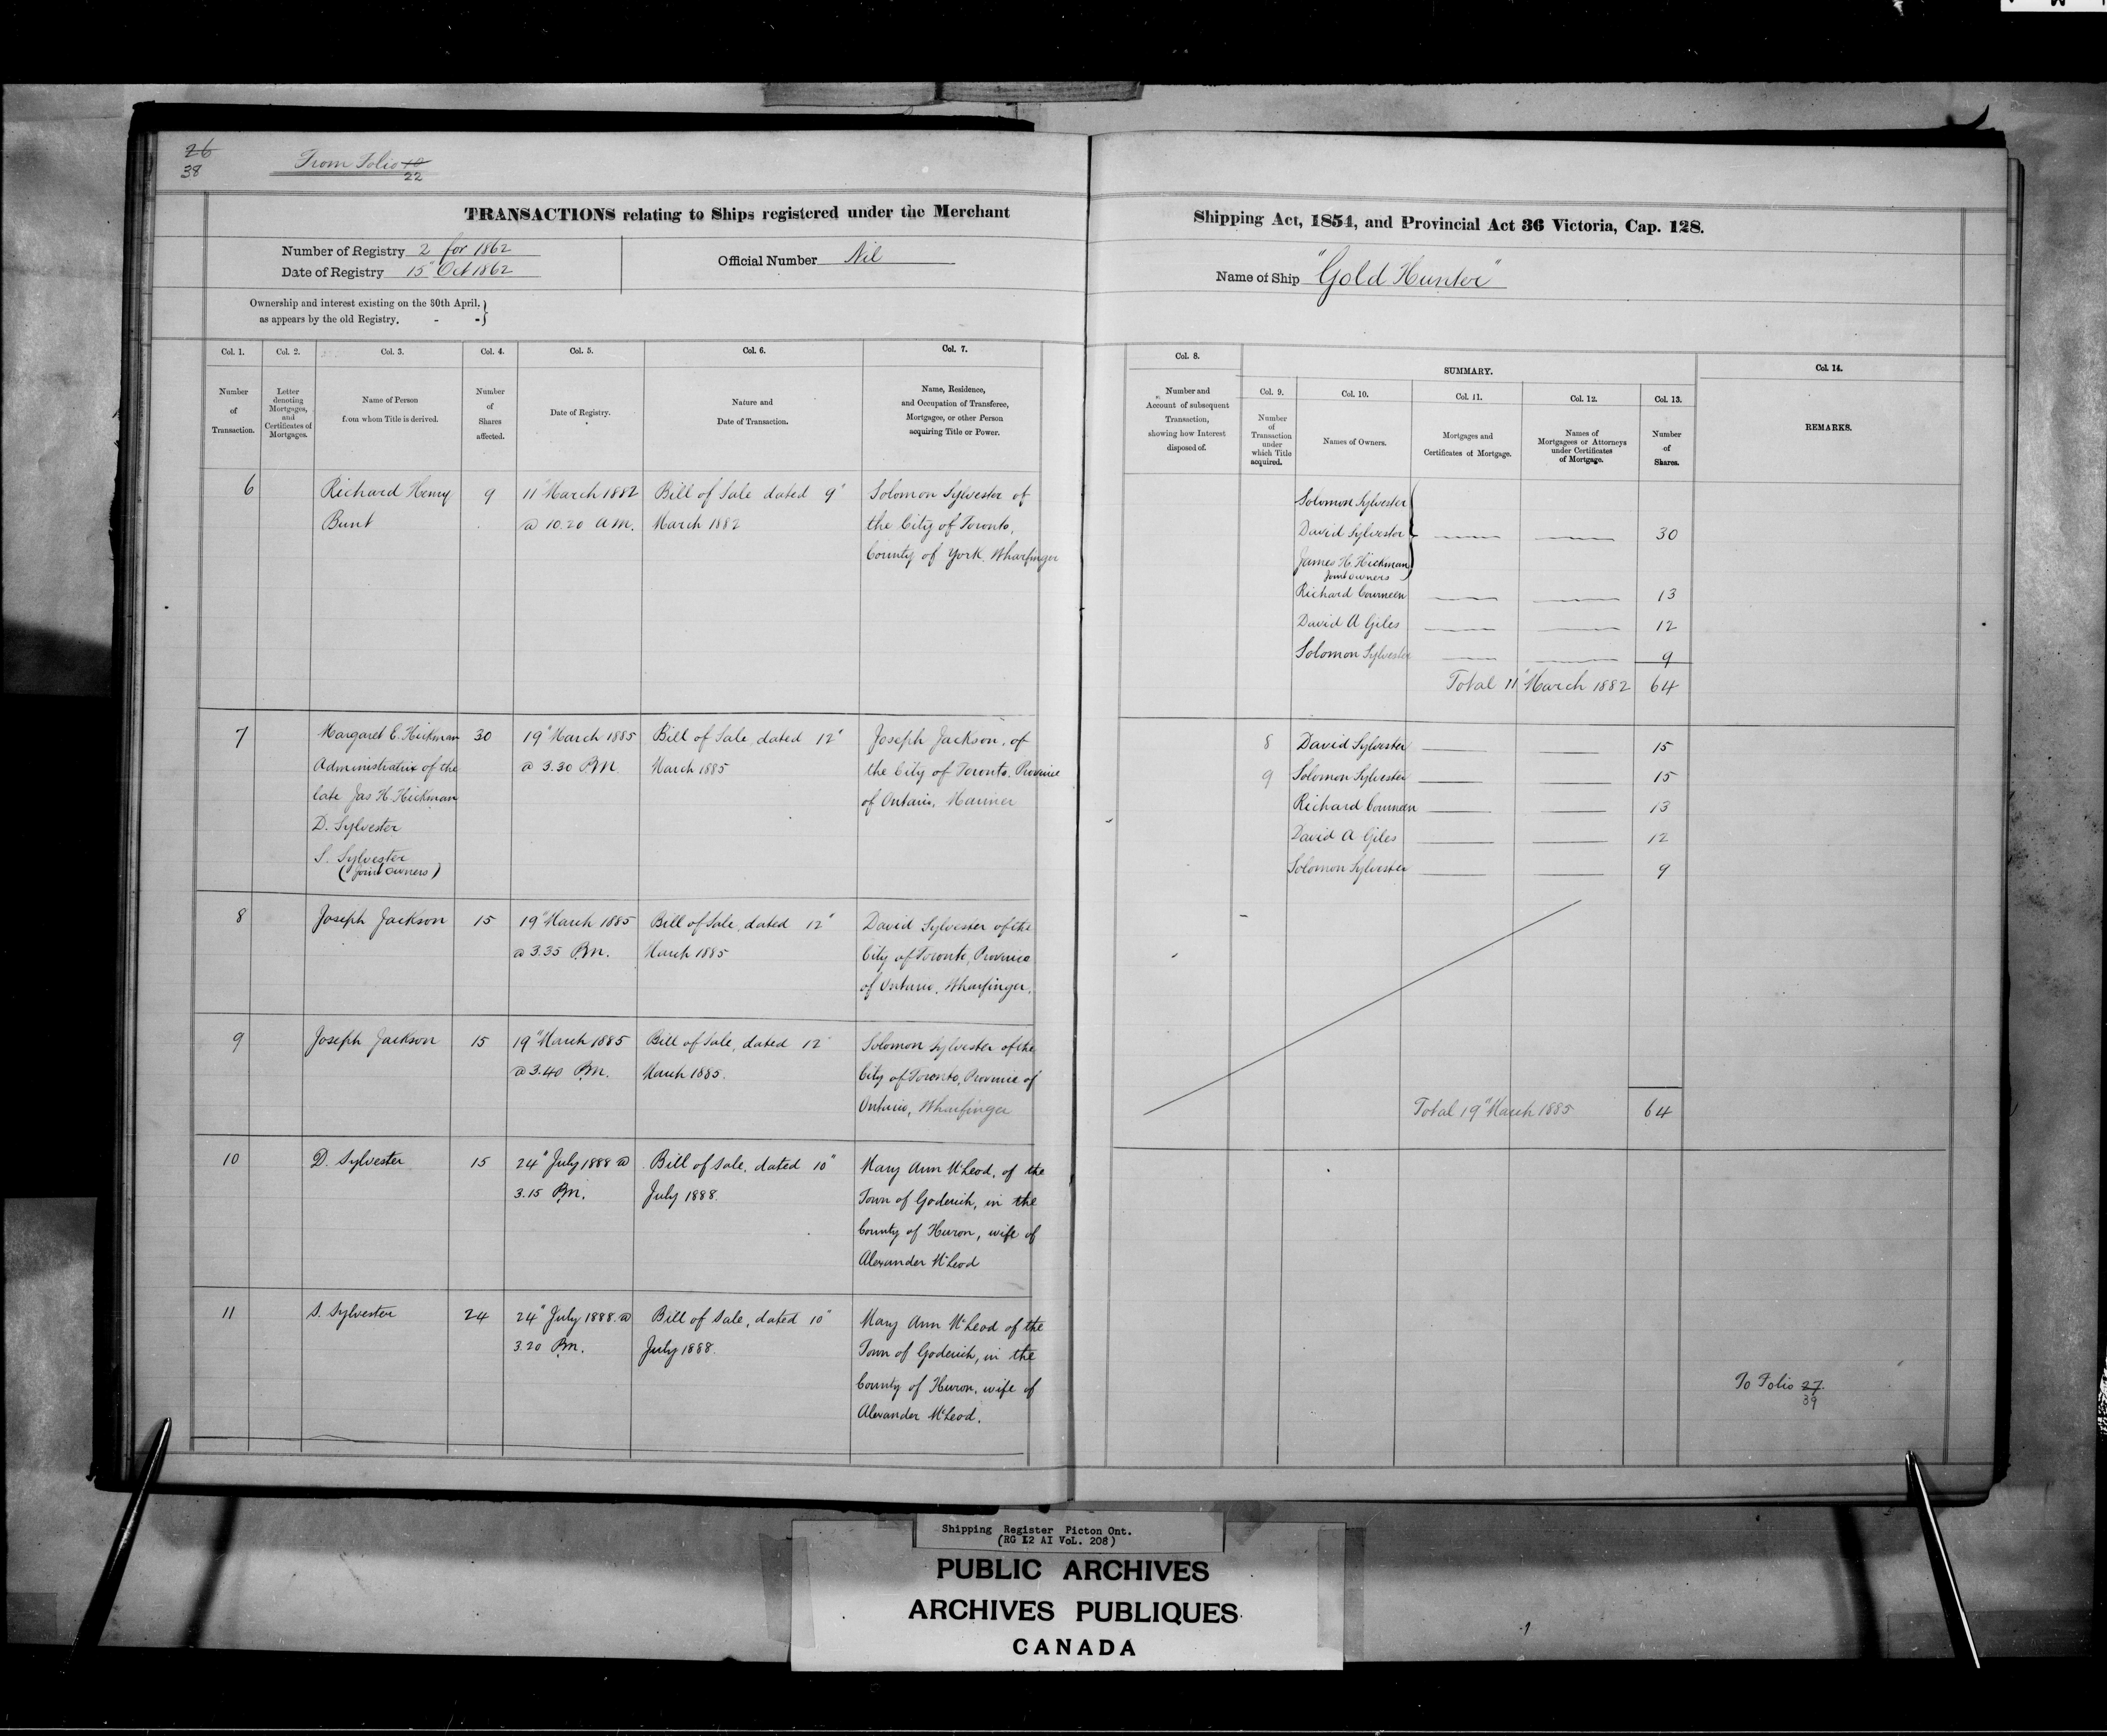 26
38
From Folio 10
22
TRANSACTIONS relating to Ships registered under the Merchant
Number of Registry 2 for 1862
Date of Registry 15" Oct 1862
Official Number Nil
Ownership and interest existing on the 30th April,
as appears by the old Registry. - -
Col. 1. Col. 2. Col. 3. Col. 4. Col. 5. Col. 6. Col. 7.
Number
of
Transaction.
Letter
denoting
Mortgages,
and
Certificates of
Mortgages.
Name of Person
from whom Title is derived.
Number
of
Shares
affected.
Date of Registry.
Nature and
Date of Transaction.
Name, Residence,
and Occupation of Transferee,
Mortgagee, or other Person
acquiring Title or Power.
6 Richard Henry 9 11" March 1882 Bill of Sale dated 9" Solomon Sylvester of
Bunt @ 10.20 A.M. March 1882 the City of Toronto,
County of York, Wharfinger
7 Margaret E. Hickman 30 19" March 1885 Bill of Sale, dated 12" Joseph Jackson, of
Administratrix of the @ 3.30 P.M. March 1885 the City of Toronto, Province
late Jas H. Hickman of Ontario, Mariner
D. Sylvester
S. Sylvester
(Joint Owners)
8 Joseph Jackson 15 19" March 1885 Bill of Sale, dated 12" David Sylvester of the
@ 3.35 P.M. March 1885 City of Toronto, Province
of Ontario, Wharfinger.
9 Joseph Jackson 15 19" March 1885 Bill of Sale, dated 12" Solomon Sylvester of the
@ 3.40 P.M. March 1885. City of Toronto, Province of
Ontario, Wharfinger
10 D. Sylvester 15 24" July 1888 @ Bill of Sale, dated 10" Mary Ann McLeod, of the
3.15 P.M. July 1888. Town of Goderich, in the
County of Huron, wife of
Alexander McLeod
11 S. Sylvester 24 24" July 1888 @ Bill of Sale, dated 10" Mary Ann McLeod of the
3.20 P.M. July 1888. Town of Goderich, in the
County of Huron, wife of
Alexander McLeod.
Shipping Act, 1854, and Provincial Act 36 Victoria, Cap. 128.
Name of Ship "Gold Hunter"
Col. 8. SUMMARY. Col. 14.
Col. 9. Col. 10. Col. 11. Col. 12. Col. 13.
Number and
Account of subsequent
Transaction,
showing how Interest
disposed of.
Number
of
Transaction
under
which Title
acquired.
Names of Owners.
Mortgages and
Certificates of Mortgage.
Names of
Mortgagees or Attorneys
under Certificates
of Mortgage.
Number
of
Shares.
REMARKS.
Solomon Sylvester
David Sylvester 30
James H. Hickman
Joint Owners
Richard Courneen 13
David A Giles 12
Solomon Sylvester 9
Total 11" March 1882 64
8 David Sylvester 15
9 Solomon Sylvester 15
Richard Courneen 13
David A Giles 12
Solomon Sylvester 9
Total 19" March 1885 64
To Folio 27
39
Shipping Register Picton Ont.
(RG 12 AI VoL. 208)
PUBLIC ARCHIVES
ARCHIVES PUBLIQUES
CANADA